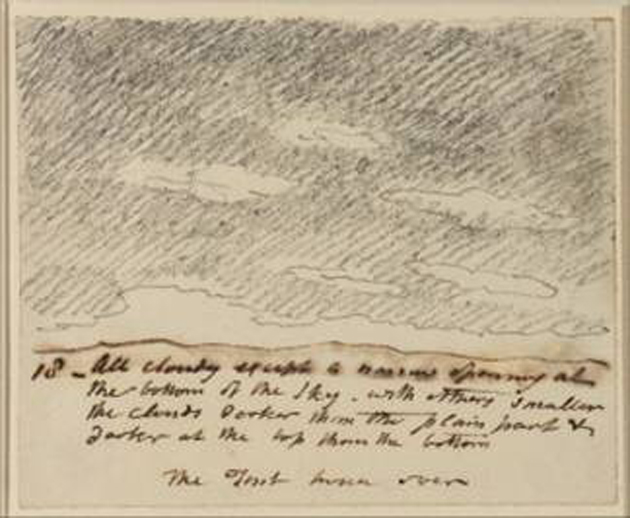 18 - All cloudy except a narrow opening at
the bottom of the Sky - with others smaller
the clouds Darker than the plain part &
Darker at the top than the bottom
The Tint twice over